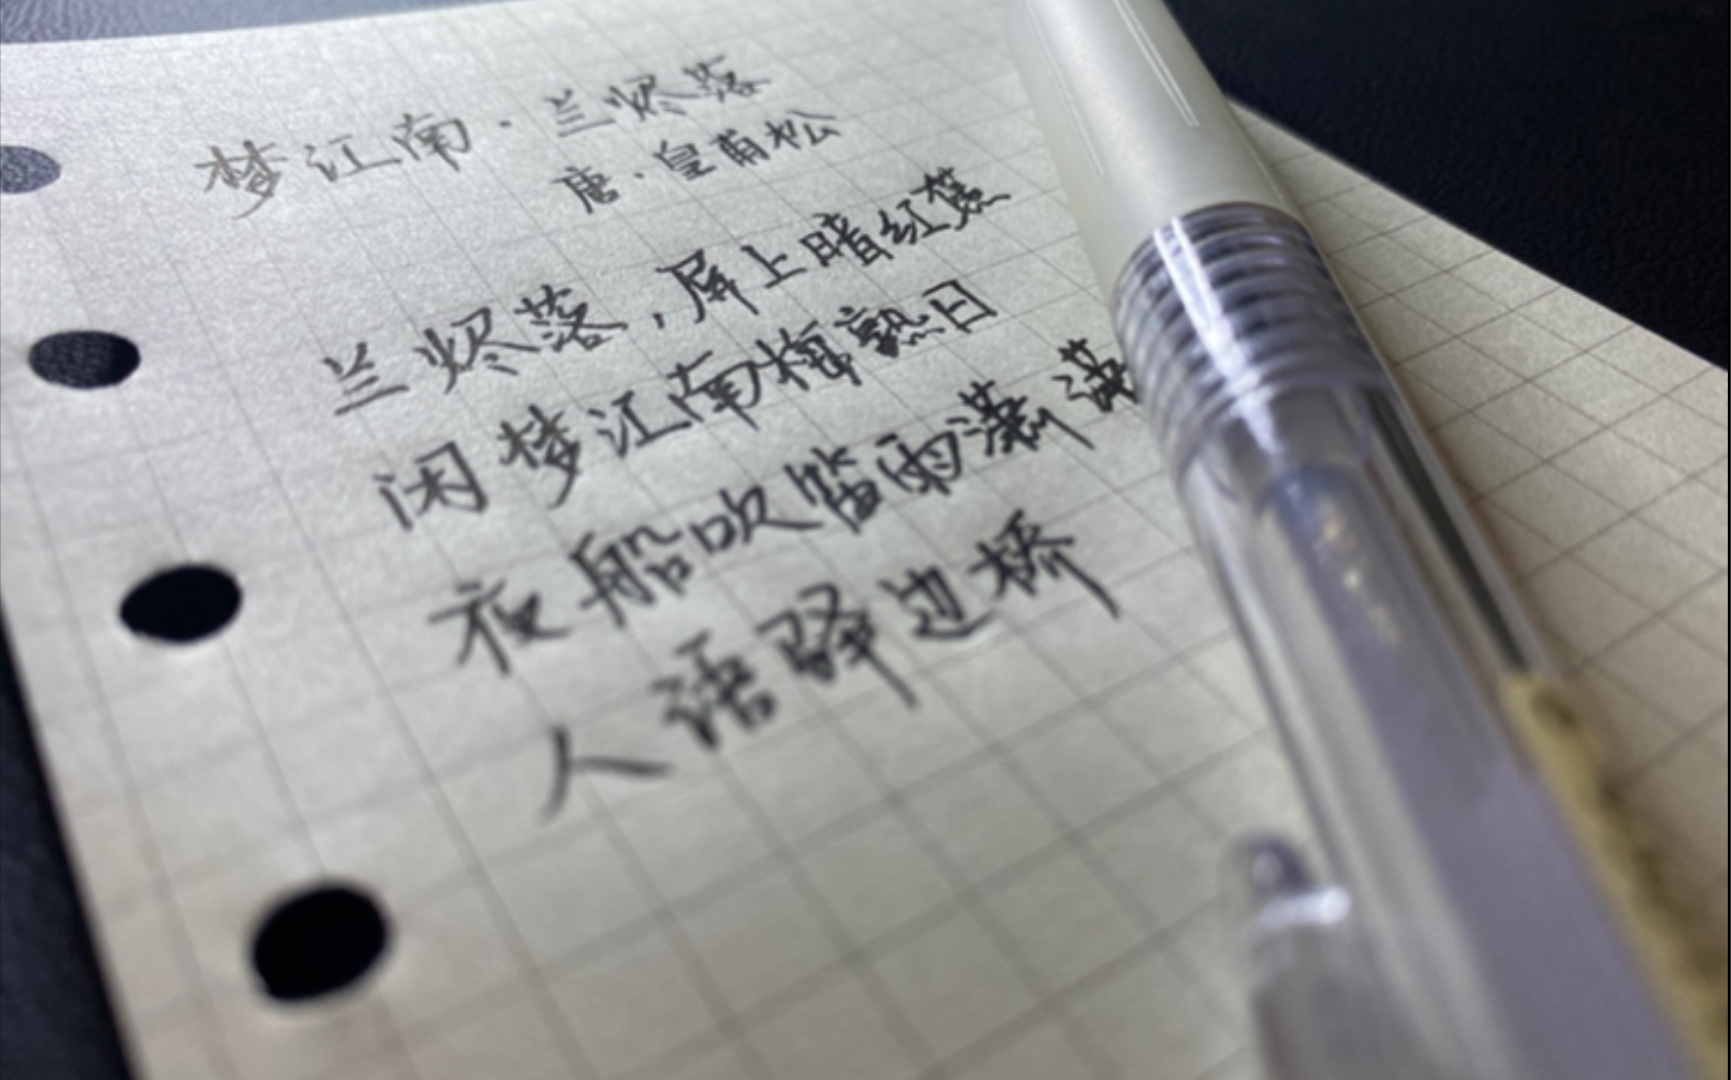 梦江南·兰烬落
唐·皇甫松
兰烬落，屏上暗红蕉
闲梦江南梅熟日
夜船吹笛雨潇潇
人语驿边桥